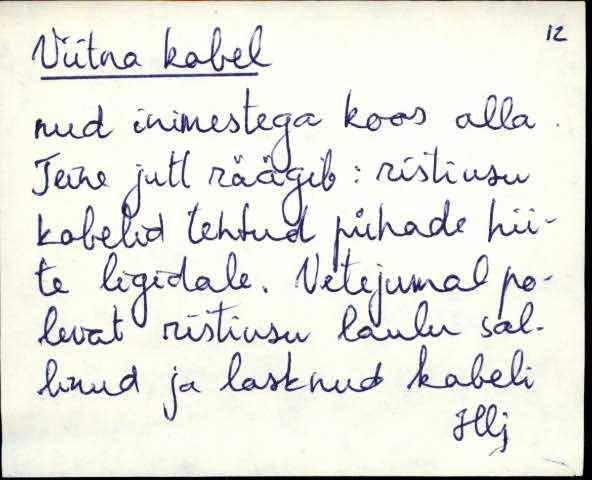 12
Viitna kabel
nud inimestega koos alla.
Teine jutt räägib: ristiusu
kabelid tehtud pühade hii-
te ligidale. Vetejumal po-
levat ristiusu laulu sal-
linud ja lasknud kabeli
Hlj